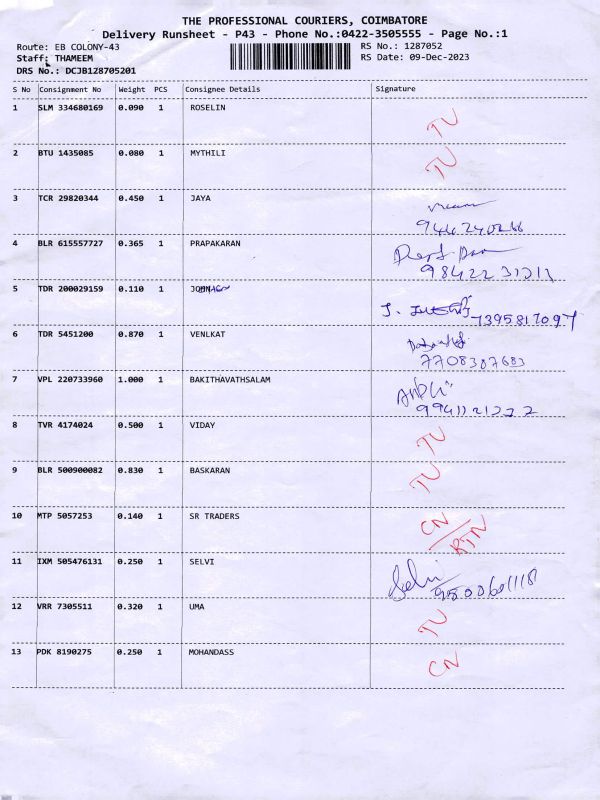 THE PROFESSIONAL COURIERS, COIMBATORE
Delivery Runsheet - P43 - Phone No.:0422-3505555 - Page No.:1
Route: EB COLONY-43 RS No.: 1287052
Staff: THAMEEM RS Date: 09-Dec-2023
DRS No.: DCJB128705201
S No Consignment No Weight PCS Consignee Details Signature
1 SLM 334680169 0.090 1 ROSELIN TU
2 BTU 1435085 0.080 1 MYTHILI TU
3 TCR 29820344 0.450 1 JAYA
4 BLR 615557727 0.365 1 PRAPAKARN
5 TDR 200029159 0.110 1 7395817097
6 TDR 5451200 0.870 1 VENLKAT
7708387683
7 VPL 220733960 1.000 1 BAKITHAVATHSALAM
8 TVR 4174024 0.500 1 VIDAY TU
9 BLR 500900082 0.830 1 BASKARAN TU
10 MTP 5057253 0.140 1 SR TRADERS CN/RTN
11 IXM 505476131 0.250 1 SELVI Selvi
12 VRR 7305511 0.320 1 UMA TU
13 PDK 8190275 0.250 1 MOHANDASS CN